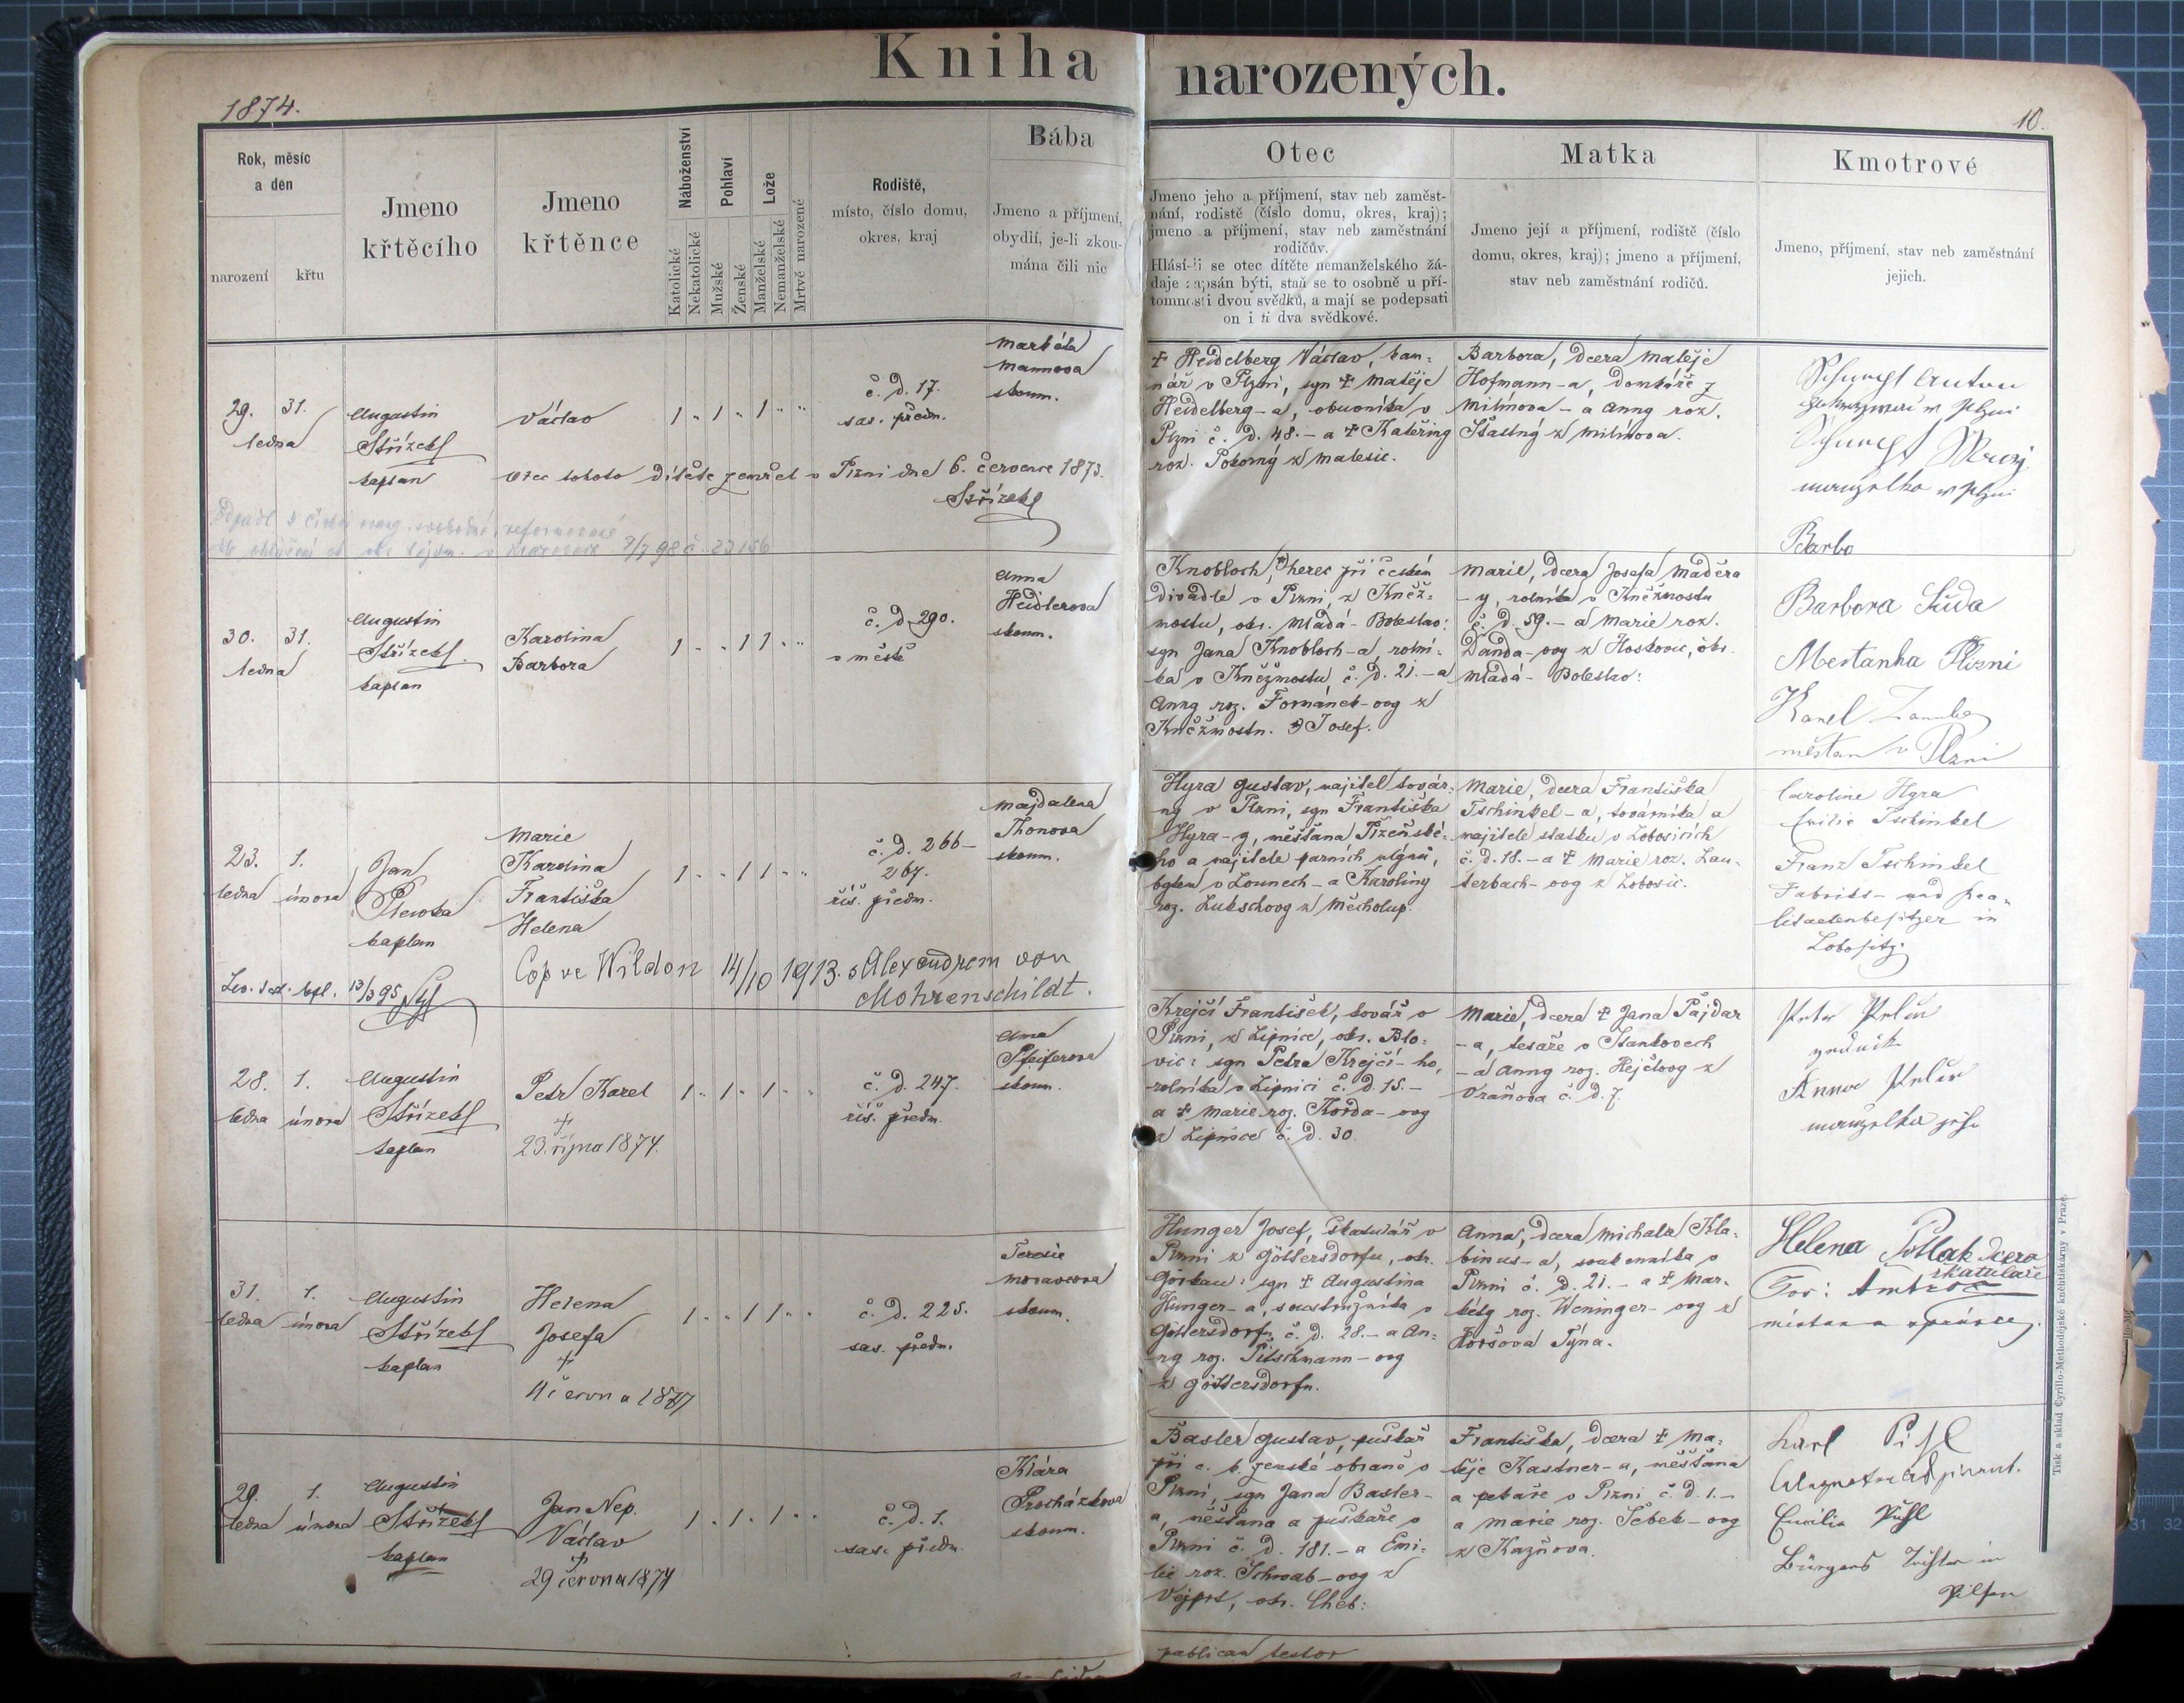 Kniha narozených.
1874.
10.
Rok, měsíc
a den
narození
křtu
Jmeno
křtěcího
Jmeno
křtěnce
Náboženství
Katolické
Nekatolické
Pohlaví
Mužské
Ženské
Lože
Manželské
Nemanželské
Mrtvě narozené
Rodiště,
místo, číslo domu,
okres, kraj
Bába
Jmeno a příjmení,
obydlí, je-li zkou-
mána čili nic
Otec
Jmeno jeho a příjmení, stav neb zaměst-
nání, rodistě (číslo domu, okres, kraj);
jmeno a příjmení, stav neb zaměstnání
rodičův.
Hlásí-li se otec dítěte nemanželského žá-
daje zapsán býti, staň se to osobně u pří-
tomnosti dvou svědků, a mají se podepsati
on i ti dva svědkové.
Matka
Jmeno její a příjmení, rodiště (číslo
domu, okres, kraj); jmeno a příjmení,
stav neb zaměstnání rodičů.
Kmotrové
Jmeno, příjmení, stav neb zaměstnání
jejich.
29. 31.
ledna
Augustin
Střízek
kaplan
Václav
1 " 1 " 1 " "
č. d. 17.
sas. předm.
Markéta
Mannova
skoum.
Otec tohoto dítěte zemřel v Plzni dne 6. července 1873.
Střízek
7/7 98 č. 23156
† Heidelberg Václav, kam-
nář v Plzni, syn † Matěje
Heidelberg-a, obuvníka v
Plzni č. d. 48. - a † Kateřiny
roz. Pokorný z Malesic.
Barbora, dcera Matěje
Hofmann-a, domkáře z
Milínova - a Anny roz.
Šťastný z Milínova.
Anton
Barbo
30. 31.
ledna
Augustin
Střízek
kaplan
Karolina
Barbora
1 " " 1 1 " "
č. d. 290.
v městě
Anna
Heidlerova
skoum.
Knobloch, *) herec při českém
divadle v Plzni, z Kněž-
mostu, okr. Mladá-Boleslav:
syn Jana Knobloch-a, rolní-
ka v Kněžmostu č. d. 21. - a
Anny roz. Formánek-ovy z
Kněžmostu. *) Josef.
Marie, dcera Josefa Maděra
-y, rolníka v Kněžmostu
č. d. 59. - a Marie roz.
Danda-ovy z Hoskovic, okr.
Mladá-Boleslav:
Barbora Suda
Mestanka Plzni
Karel
měštan v Plzni
23. 1.
ledna února
Jan
kaplan
Marie
Karolina
Františka
Helena
1 " " 1 1 " "
č. d. 266-
267.
říš. předm.
Majdalena
Thonova
skoum.
13/3 95
Cop ve Wildon 14/10 1913. s Alexandrem von
Mohrenschildt.
Hyra Gustav, majitel továr-
ny v Plzni, syn Františka
Hyra-y, měšťana Plzeňské-
ho a majitele parních mlýnů,
bytem v Lounech - a Karoliny
roz. Lukschovy z Měcholup.
Marie, dcera Františka
Tschinkel-a, továrníka a
majitele statku v Lobosicích
č. d. 18. - a † Marie roz. Lau-
terbach-ovy z Lobosic.
Caroline Hyra
Emilie Tschinkel
Franz Tschinkel
Fabriks- und Rea-
litaetenbesitzer in
Lobositz.
28. 1.
ledna února
Augustin
Střízek
kaplan
Petr Karel
†
23. října 1874.
1 " 1 " 1 " "
č. d. 247.
říš. předm.
Anna
Pfeiferova
skoum.
Krejčí František, továř v
Plzni, z Lipnice, okr. Blo-
vic: syn Petra Krejčí-ho,
rolníka v Lipnici č. d. 15. -
a † Marie roz. Korda-ovy
z Lipnice č. d. 30.
Marie, dcera † Jana Pajdar
-a, tesaře v Stankovech
- a Anny roz. Hejčlovy z
Vraňova č. d. 7.
Petr
Anna
manželka jeho
31. 1.
ledna února
Augustin
Střízek
kaplan
Helena
Josefa
†
1 " " 1 1 " "
č. d. 225.
sas. předm.
Terezie
Moravcova
skoum.
Hunger Josef, škatulář v
Plzni z Göttersdorfu, okr.
Görkau: syn † Augustina
Hunger-a, soustružníka v
Göttersdorfu č. d. 28. - a An-
ny roz. Pitschmann-ovy
z Göttersdorfu.
Anna, dcera Michala Kla-
binus-a, soukenníka v
Plzni č. d. 21. - a † Mar-
kety roz. Weninger-ovy z
Horšova Týna.
Helena Pollak dcera
škatuláře
29. 1.
ledna února
Augustin
Střízek
kaplan
Jan Nep.
Václav
†
29 června 1874
1 " 1 " 1 " "
č. d. 1.
sas. předm.
Klára
Procházkova
skoum.
Basler Gustav, puškař
při c. k. zemské obraně v
Plzni, syn Jana Basler-
a, měšťana a puškaře v
Plzni č. d. 181. - a Emi-
lie roz. Schwab-ovy z
Vejprt, okr. Cheb:
Františka, dcera † Ma-
těje Kastner-a, měšťana
a pekaře v Plzni č. d. 1. -
a Marie roz. Šebek-ovy
z Kazňova.
Karl
Emilie
Bürgers Tochter in
Pilsen
Tisk a sklad Cyrillo-Methodějské knihtiskárny v Praze.